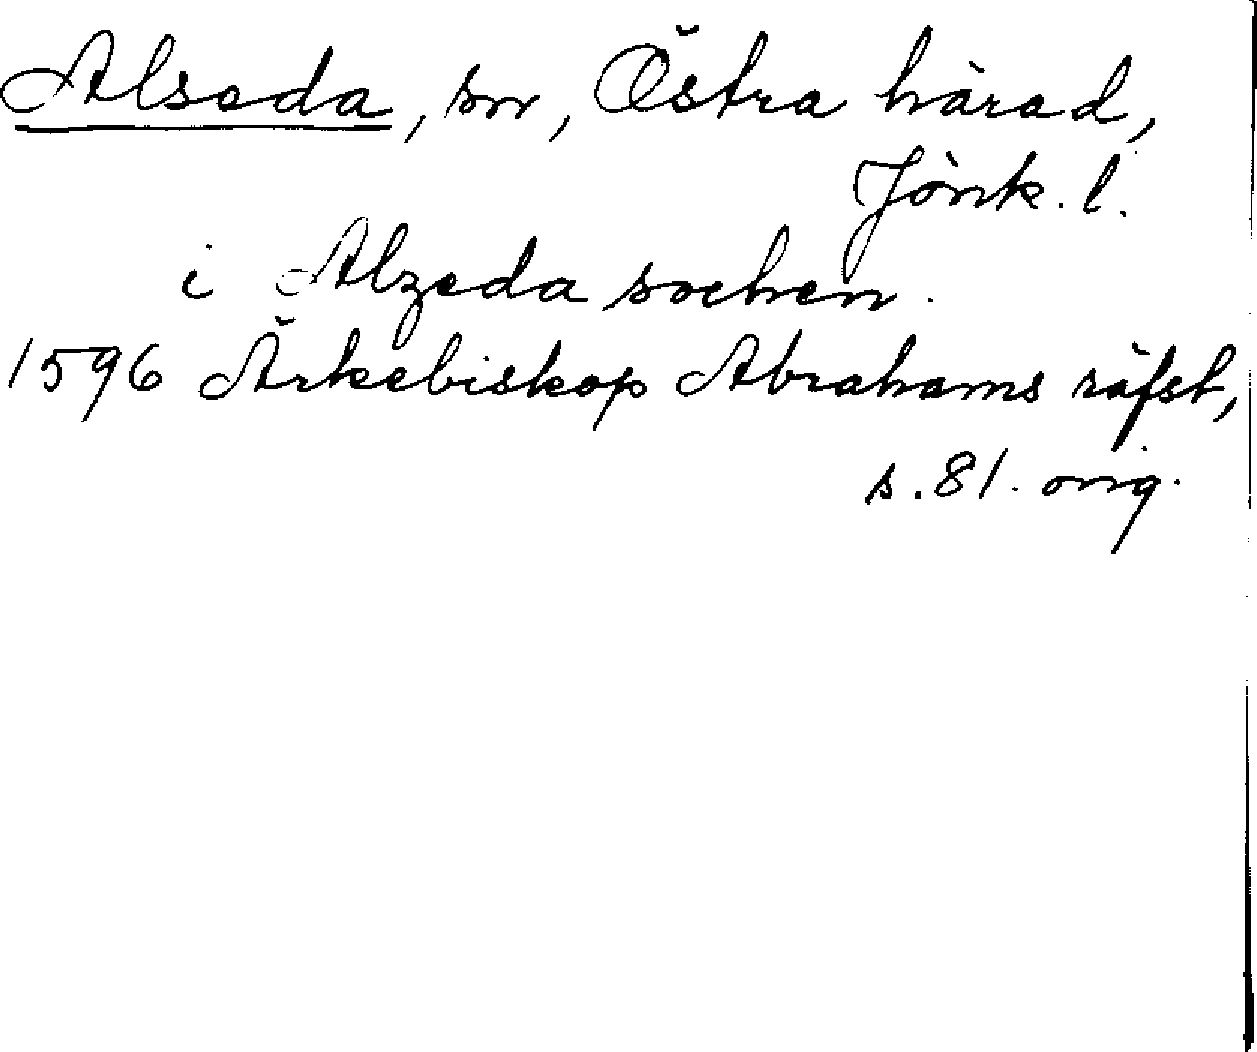 Alseda, sn, Östra härad,
Jönk. l.
i Alzeda sochen.
1596 Ärkebiskop Abrahams räfst,
s. 81. orig.